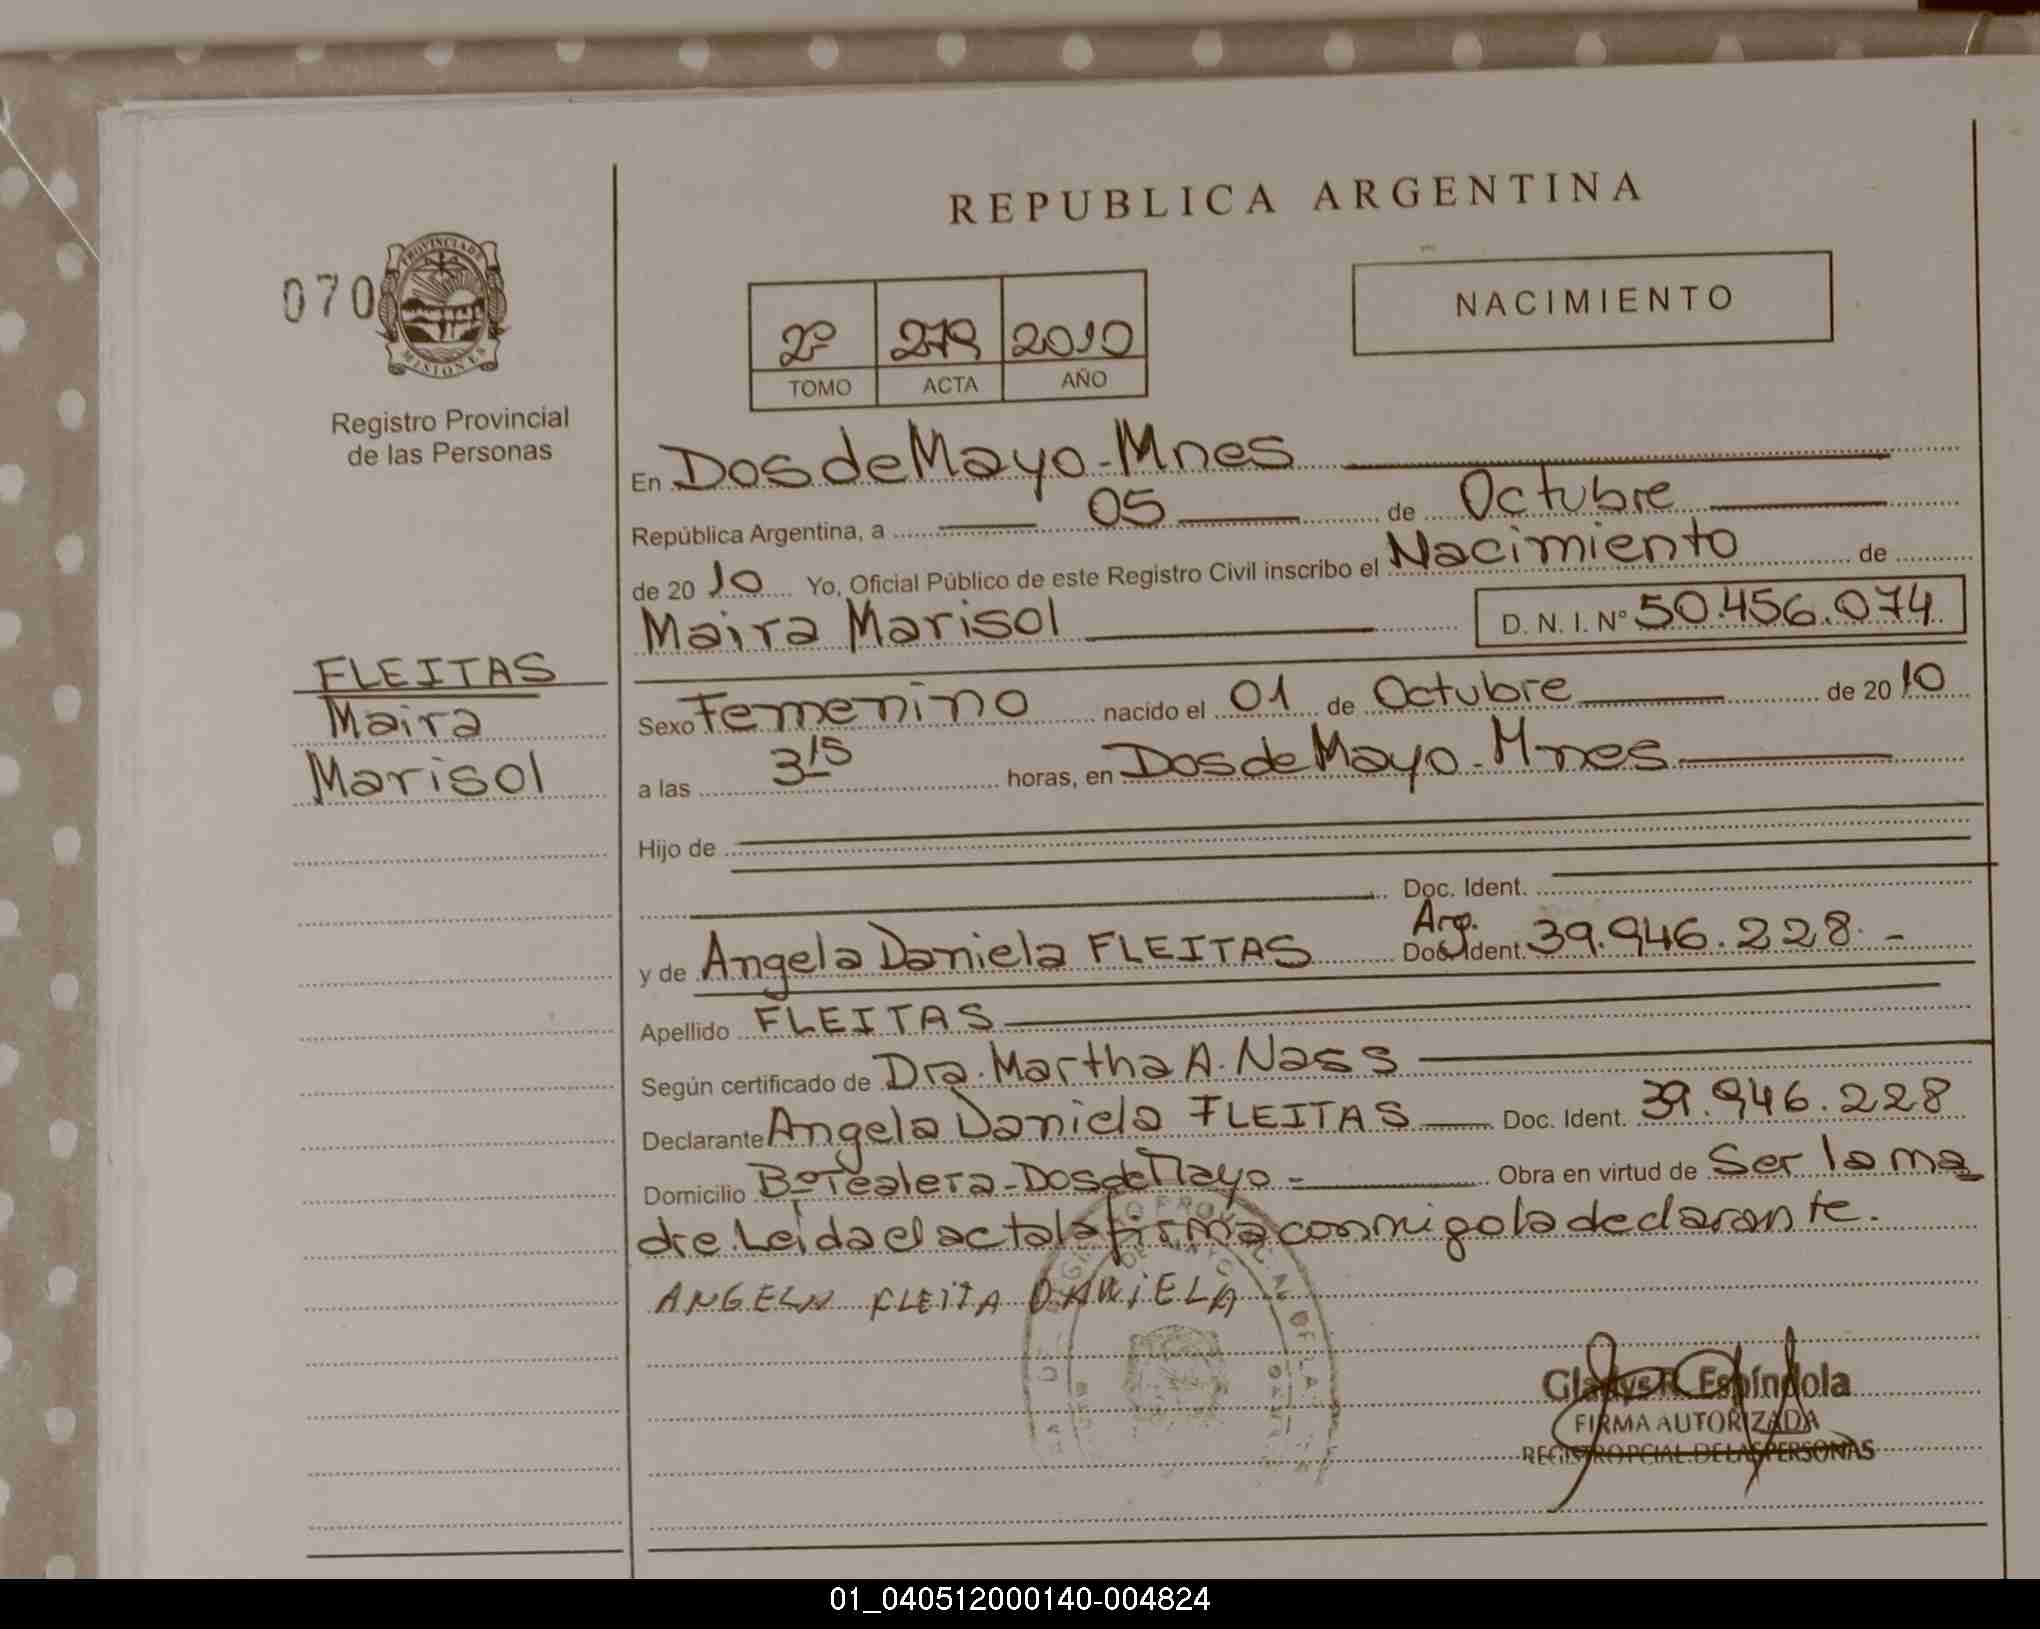 REPUBLICA ARGENTINA
070
PROVINCIA DE
MISIONES
Registro Provincial
de las Personas
NACIMIENTO
2º 279 2010
TOMO ACTA AÑO
En Dos de Mayo - Mnes
República Argentina, a 05 de Octubre
de 2010 Yo, Oficial Público de este Registro Civil inscribo el Nacimiento de
Maira Marisol D. N. I. Nº 50.456.074
FLEITAS
Maira
Marisol
Sexo Femenino nacido el 01 de Octubre de 2010
a las 3 15 horas, en Dos de Mayo - Mnes
Hijo de
Doc. Ident.
y de Angela Daniela FLEITAS Arg. Doc. Ident. 39.946.228.-
Apellido FLEITAS
Según certificado de Dra. Martha A. Nass
Declarante Angela Daniela FLEITAS Doc. Ident. 39.946.228
Domicilio Bº Tealera - Dos de Mayo - Obra en virtud de Ser la ma
dre. Leída el acta la firma conmigo la declarante.
ANGELA FLEITA DANiELA
Gladys R. Espíndola
FIRMA AUTORIZADA
REGISTRO PCIAL. DE LAS PERSONAS
01_040512000140-004824